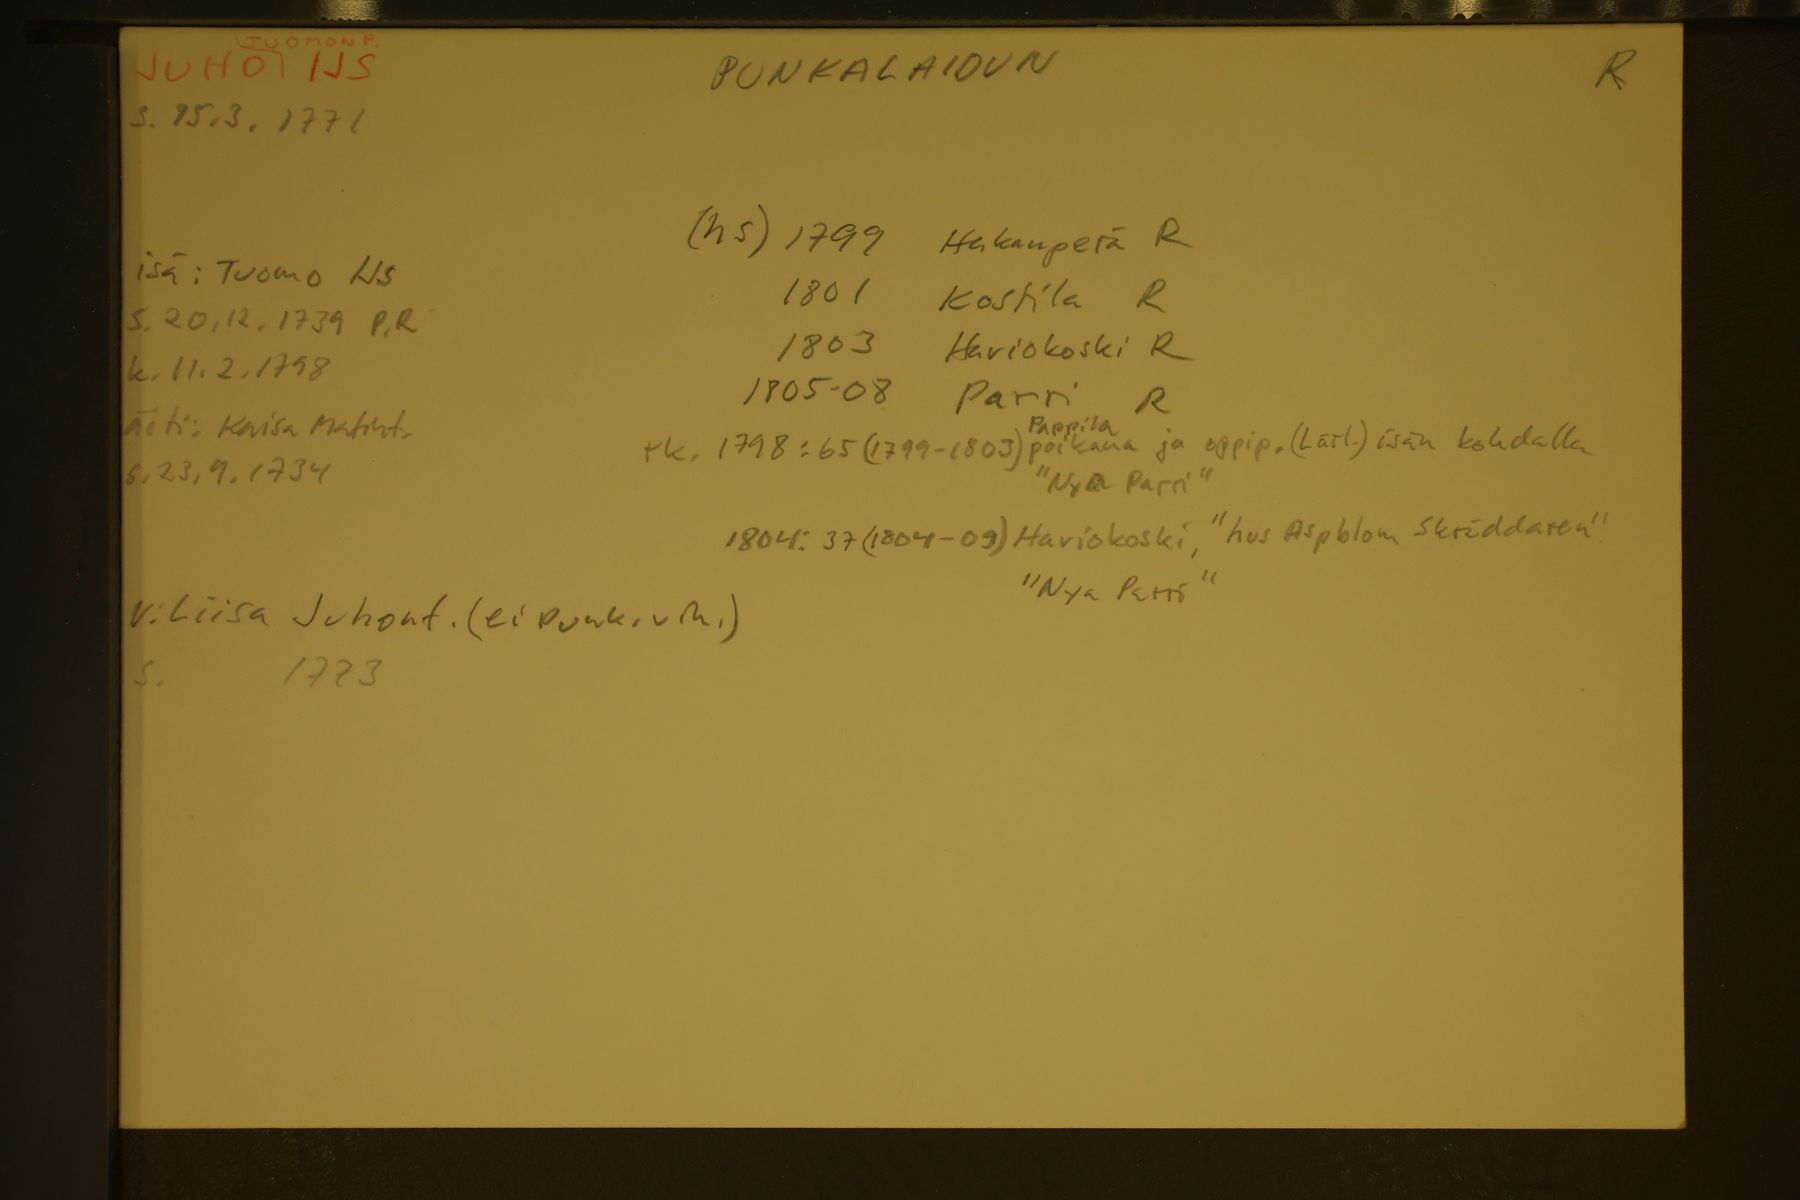 TUOMON P.
JUHO IJS
PUNKALAIDUN
R
s. 15.3. 1771
(hs) 1799 Hakanperä R
isä: Tuomo IJs
1801 Kostila R
s. 20.12. 1739 P.R
1803 Haviokoski R
k. 11.2.1798
1805-08 Parri R
äiti: Kaisa Matint.
Pappila
rk. 1798: 65 (1799-1803) poikana ja oppip. (Lärl.) isän kohdalla
s. 23.9.1734
"Nya Parri"
1804: 37 (1804-09) Haviokoski, "hus Aspblom Skräddaren"
"Nya Parri"
v: Liisa Juhont. (ei Punk. vih.)
s. 1773